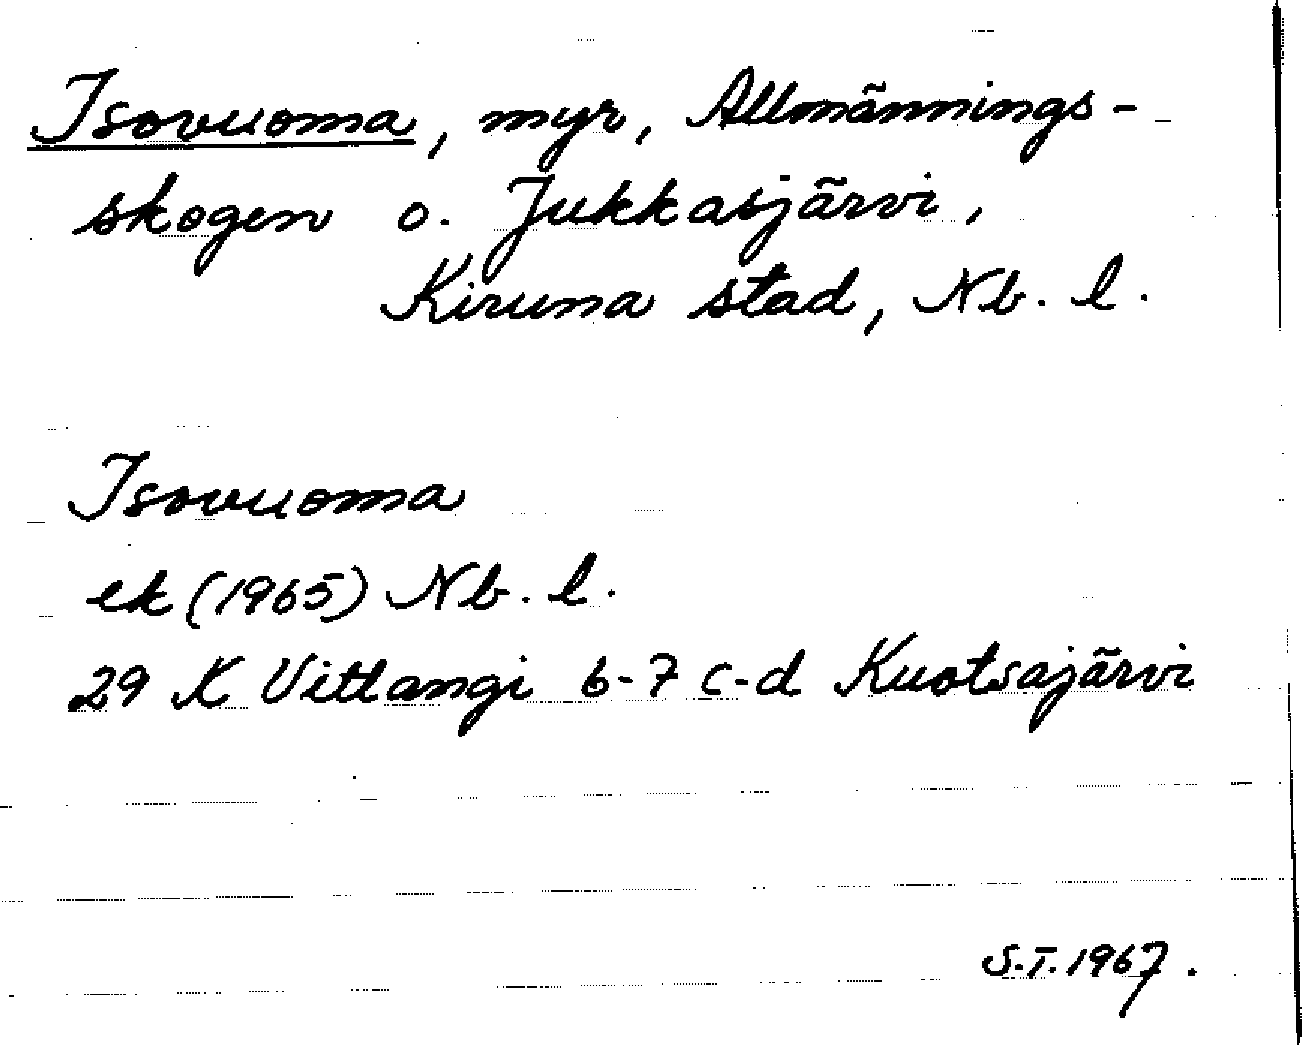 Isovuoma, myr, Allmännings-
skogen o. Jukkasjärvi,
Kiruna stad, Nb. l.
Isovuoma
ek (1965) Nb. l.
29 K Vittangi 6-7 c-d Kuotsajärvi
S.T. 1967.